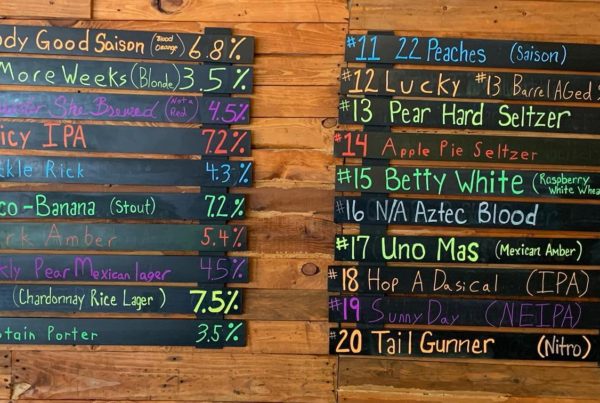 ody Good Saison (Blood Orange) 6.8%
More Weeks (Blonde) 3.5%
She Brewed (Not a Red) 4.5%
icy IPA 7.2%
kle Rick 4.3%
co-Banana (Stout) 7.2%
rk Amber 5.4%
kly Pear Mexican lager 4.5%
(Chardonnay Rice Lager) 7.5%
tain Porter 3.5%
#11 22 Peaches (Saison)
#12 Lucky #13 Barrel AGed
#13 Pear Hard Seltzer
#14 Apple Pie Seltzer
#15 Betty White (Raspberry White Whea
#16 N/A Aztec Blood
#17 Uno Mas (Mexican Amber)
#18 Hop A Dasical (IPA)
#19 Sunny Day (NEIPA)
#20 Tail Gunner (Nitro)